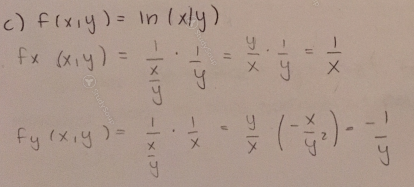 c) f(x,y) = ln(x/y)
fx (x,y) = 1/(x/y) · 1/y = y/x · 1/y = 1/x
fy (x,y) = 1/(x/y) · 1/x = y/x (-x/y²) = -1/y